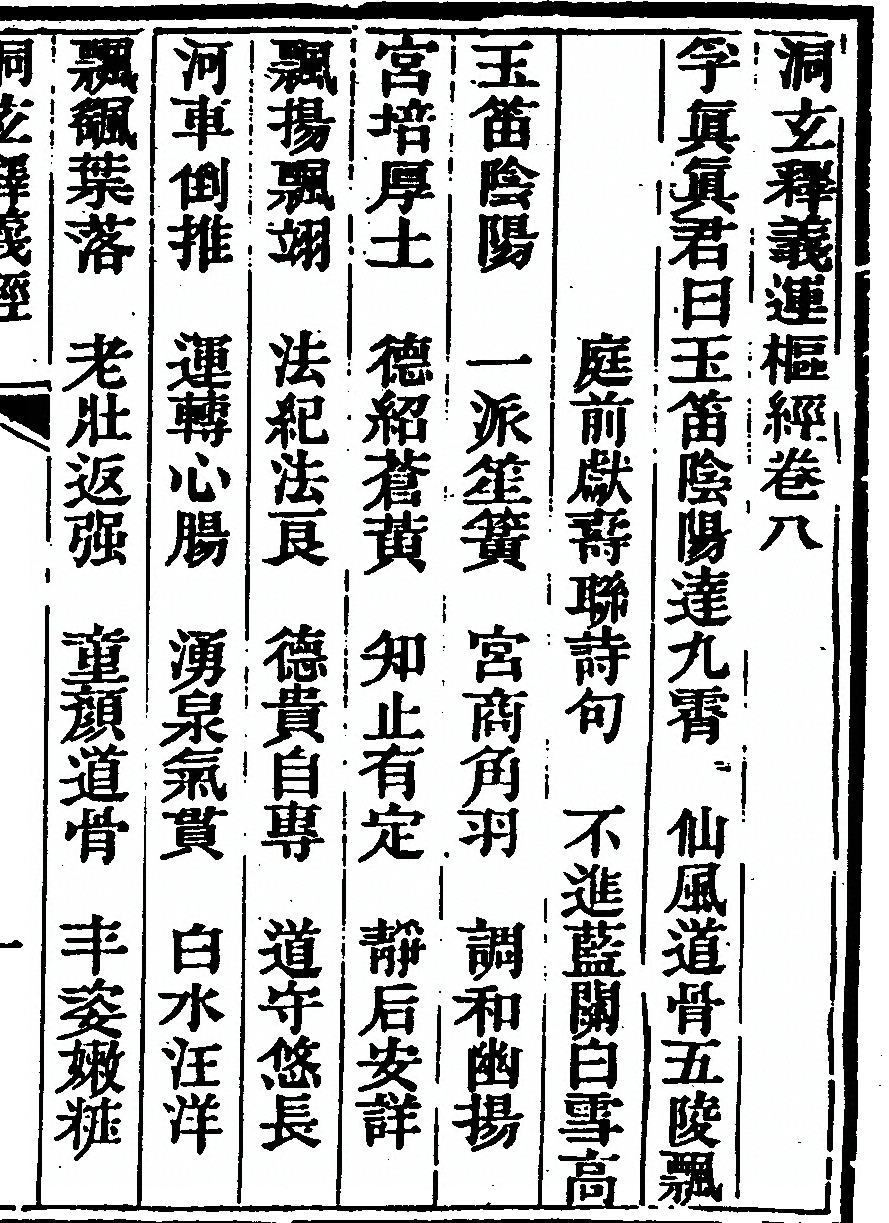 洞玄釋義運樞經卷八
孚真真君曰玉笛陰陽達九霄 仙風道骨五陵飄
庭前獻壽聯詩句 不進藍關白雪高
玉笛陰陽 一派笙簧 宮商角羽 調和幽揚
宮培厚土 德紹蒼黃 知止有定 靜后安詳
飄揚飄翊 法紀法良 德貴自專 道守悠長
河車倒推 運轉心腸 湧泉氣貫 白水汪洋
飄颻葉落 老壯返强 童顏道骨 丰姿嫩粧
洞玄釋義經
一